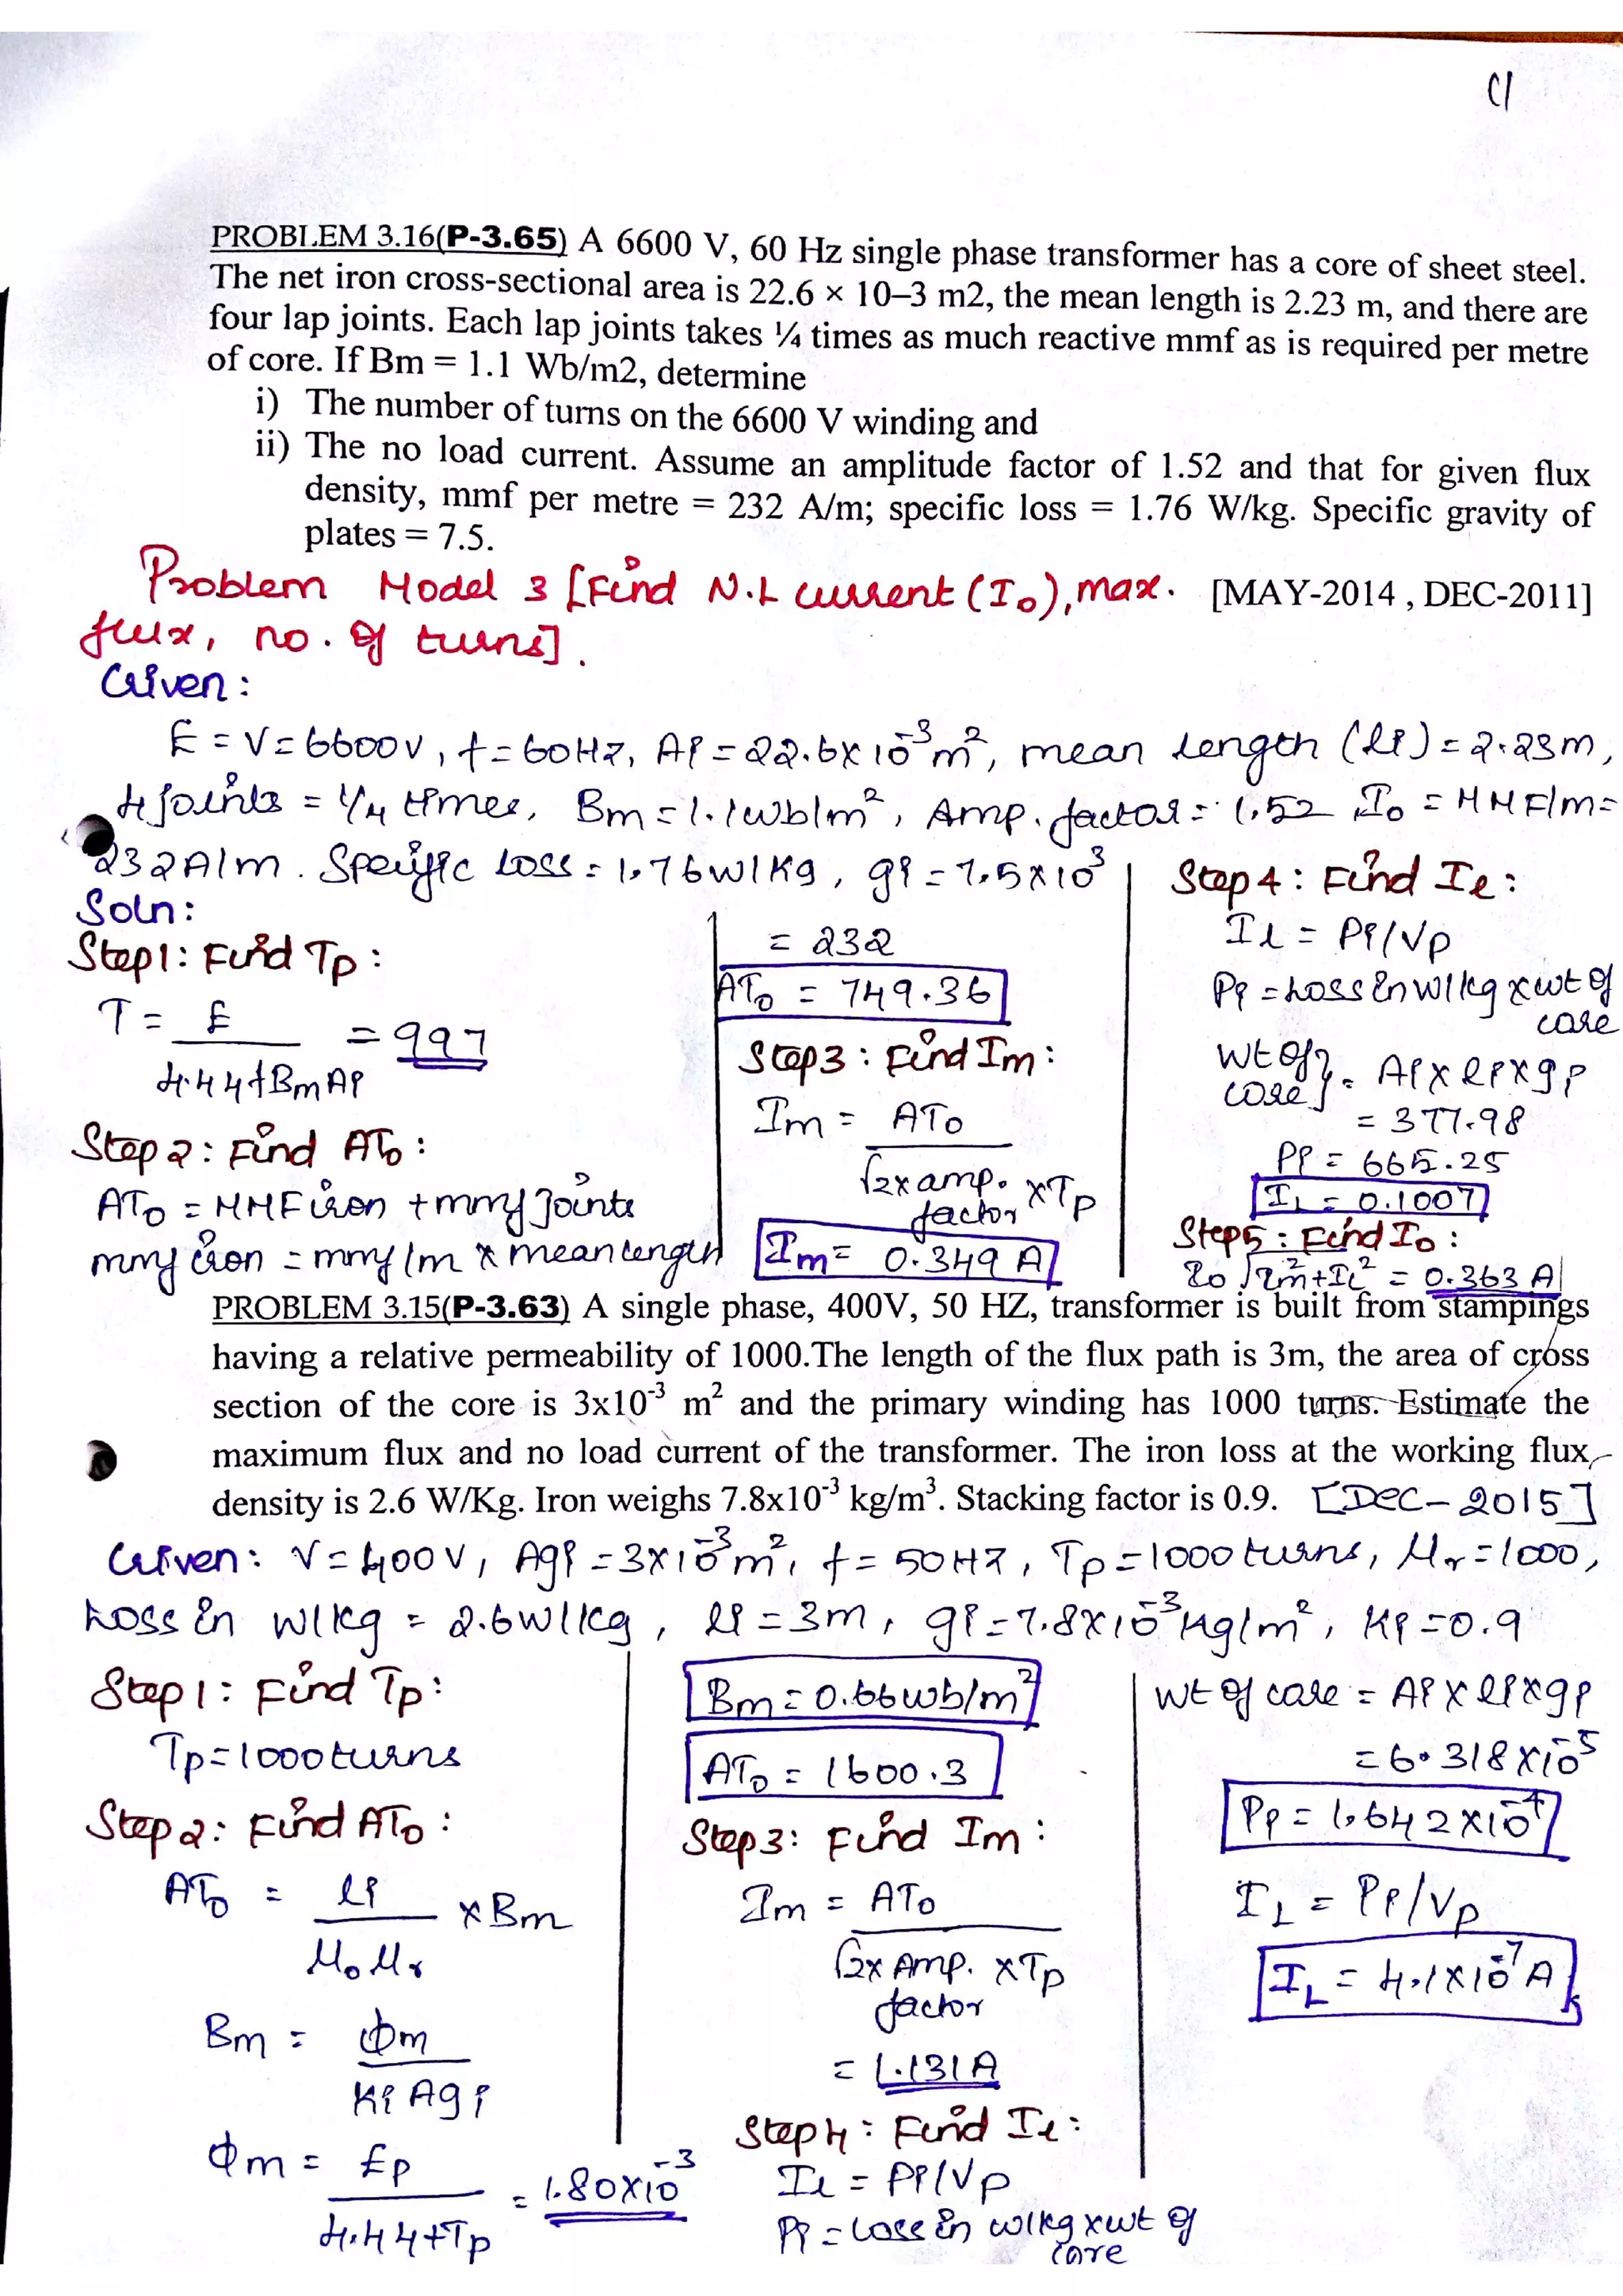 C1
PROBLEM 3.16(P-3.65) A 6600 V, 60 Hz single phase transformer has a core of sheet steel.
The net iron cross-sectional area is 22.6 × 10–3 m2, the mean length is 2.23 m, and there are
four lap joints. Each lap joints takes ¼ times as much reactive mmf as is required per metre
of core. If Bm = 1.1 Wb/m2, determine
i) The number of turns on the 6600 V winding and
ii) The no load current. Assume an amplitude factor of 1.52 and that for given flux
density, mmf per metre = 232 A/m; specific loss = 1.76 W/kg. Specific gravity of
plates = 7.5.
Problem Model 3 [Find N.L current (I₀), max. [MAY-2014 , DEC-2011]
flux, no. of turns].
Given:
E = V = 6600V, f = 60Hz, Ai = 22.6×10⁻³m², mean length (li) = 2.23m,
4 joints = 1/4 times, Bm = 1.1wb/m², Amp. factor = 1.52 I₀ = MMF/m =
232A/m. Specific loss = 1.76W/Kg, gi = 7.5×10³
Soln:
Step1: Find Tp:
T = E / 4.44fBmAi = 997
Step2: Find AT₀:
AT₀ = MMFiron + mmf Joints
mmf iron = mmf/m × mean length
= 232
AT₀ = 749.36
Step3: Find Im:
Im = AT₀ / √2× amp. factor ×Tp
Im = 0.349 A
Step4: Find Il:
Il = Pi/Vp
Pi = Loss in W/kg × wt of core
Wt of core} = Ai × li × gi
= 377.98
Pi = 665.25
IL = 0.1007
Step5: Find I₀:
I₀ √Im²+Il² = 0.363 A
PROBLEM 3.15(P-3.63) A single phase, 400V, 50 HZ, transformer is built from stampings
having a relative permeability of 1000.The length of the flux path is 3m, the area of cross
section of the core is 3x10⁻³ m² and the primary winding has 1000 turns. Estimate the
maximum flux and no load current of the transformer. The iron loss at the working flux
density is 2.6 W/Kg. Iron weighs 7.8x10⁻³ kg/m³. Stacking factor is 0.9. [Dec-2015]
Given: V = 400V, Agi = 3×10⁻³m², f = 50HZ, Tp = 1000 turns, μr = 1000,
Loss in W/kg = 2.6W/kg, li = 3m, gi = 7.8×10⁻³Kg/m², Ki = 0.9
Step1: Find Tp:
Tp = 1000 turns
Step2: Find AT₀:
AT₀ = li / μ₀μr × Bm
Bm = Φm / Ki Agi
Φm = Ep / 4.44fTp = 1.80×10⁻³
Bm = 0.66wb/m²
AT₀ = 1600.3
Step3: Find Im:
Im = AT₀ / √2× Amp. factor ×Tp
= 1.131A
Step4: Find Il:
Il = Pi/Vp
Pi = Loss in w/kg × wt of core
Wt of core = Ai × li × gi
= 6.318×10⁻⁵
Pi = 1.642×10⁻⁴
IL = Pi/Vp
IL = 4.1×10⁻⁷A